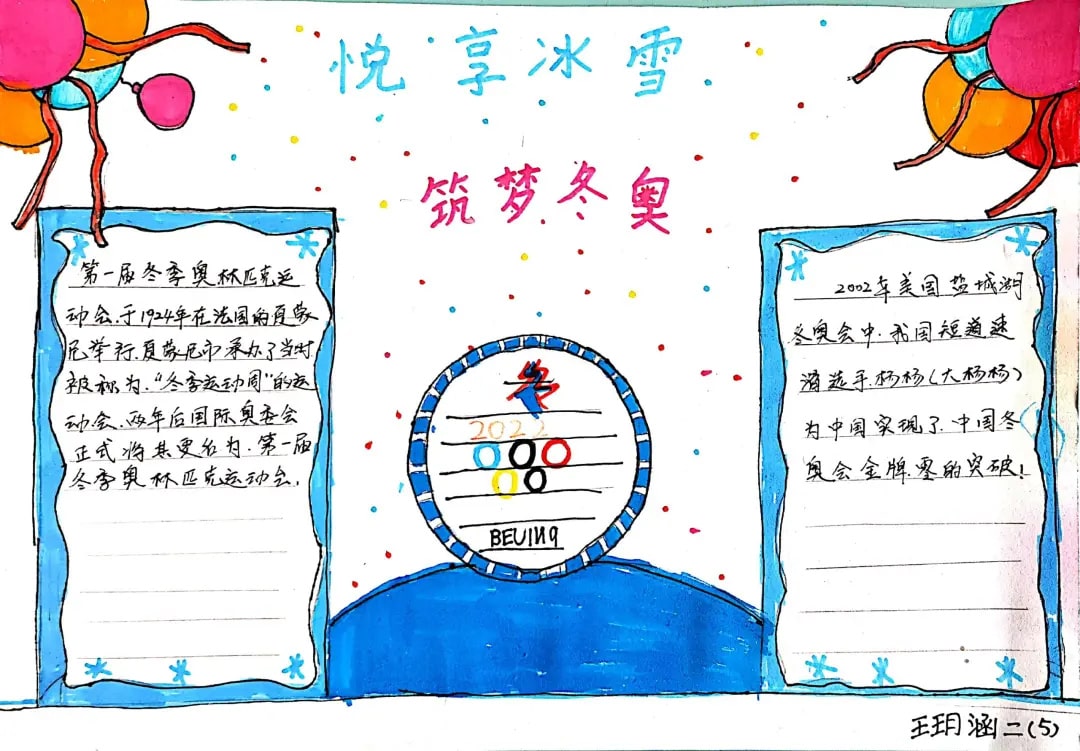 悦享冰雪
筑梦冬奥
第一届冬季奥林匹克运
动会.于1924年在法国的夏蒙
尼举行.夏蒙尼市承办了当时
被称为.“冬季运动周”的运
动会.两年后国际奥委会
正式将其更名为.第一届
冬季奥林匹克运动会.
2022
BEIJING
2002年美国盐城湖
冬奥会中.我国短道速
滑选手杨杨(大杨杨)
为中国实现了.中国冬
奥会金牌零的突破!
王玥涵二(5)